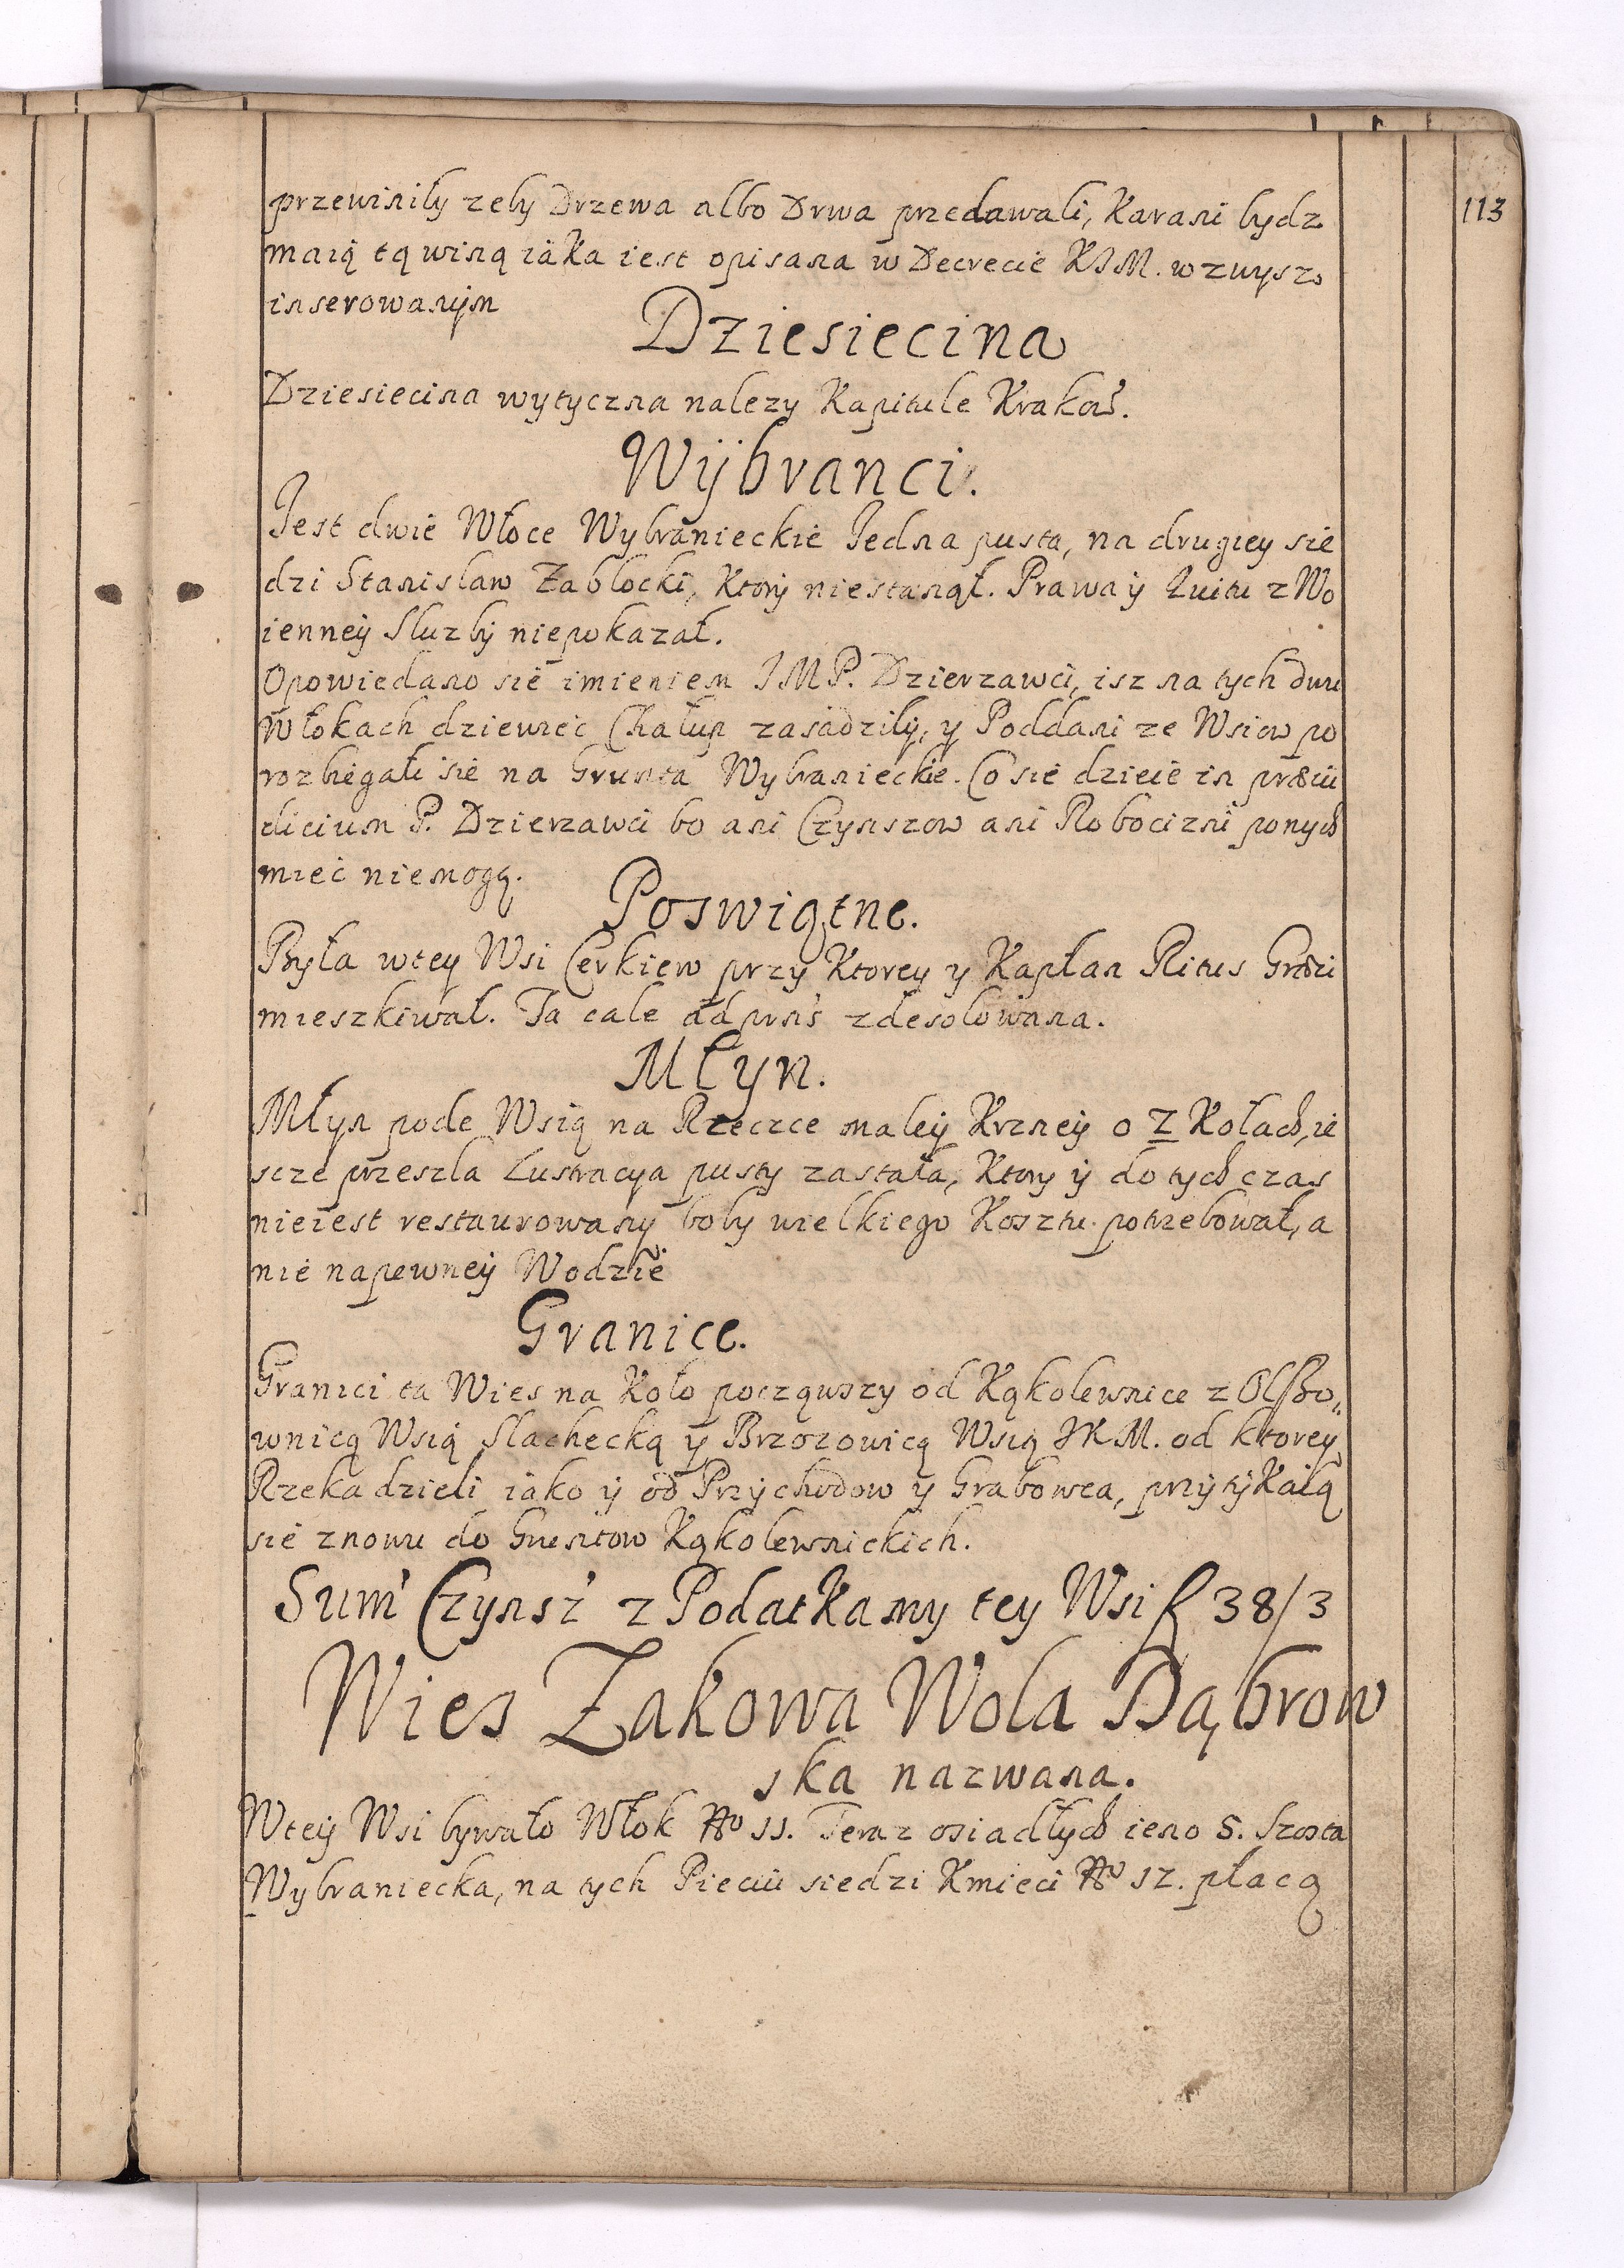 113
przewiniły zeby Drzewa albo Drwa przedawali, Karani bydz
maią tą winą iaka iest opisana w Decrecie KJM. wzwysz
inserowanÿm
Dziesiecina
Dziesiecina wytyczna nalezy Kapitule Krakow̃.
Wÿbranci.
Jest dwie Włoce Wybranieckie Jedna pusta, na drugiey sie
dzi Stanislaw Zablocki, Ktorÿ niestanął. Prawa ÿ Kwitu z Wo
ienneÿ Sluzbÿ niepokazał.
Opowiedano sie imieniem JMP. Dzierzawci, isz na tych dwu
Włokach dziewiec Chałup zasadziłÿ, y Poddani ze Wsiow po
rozbiegali sie na Grunta Wybranieckie. Co sie dzieie in præiu
dicium P. Dzierzawci bo ani Czynszow ani Robocizni ponych
miec niemogą.
Poswiątne.
Była wtey Wsi Cerkiew przy Ktorey y Kapłan Ritus Græci
mieszkiwał. Ta cale ad prns zdesolowana.
Młyn.
Młyn pode Wsią na Rzeczce maleÿ Krzneÿ o 2 Kołach, ie
scze przeszla Lustracya pusty zastała, Ktory ÿ do tych czas
nieiest restaurowany boby wielkiego Kosztu potrzebował, a
nie napewneÿ Wodzie
Granice.
Granici ta Wies na Koło począwszy od Kąkolewnice z Olszo„
wnicą Wsią Slachecką ÿ Brzozowicą Wsią JKM. od ktorey
Rzeka dzieli iako ÿ od Przychodow y Grabowca, przÿtÿkaią
sie znowu do Gruntow Kąkolewnickich.
Sum̃ Czynsz̃ z Podatkamy tey Wsi f 38/3
Wies Zakowa Wola Dąbrow
ska nazwana.
Wteÿ Wsi bywało Włok No 11. Teraz osiadłych ieno 5. Szosta
Wybraniecka, na tych Pieciu siedzi Kmieci No 12. płacą